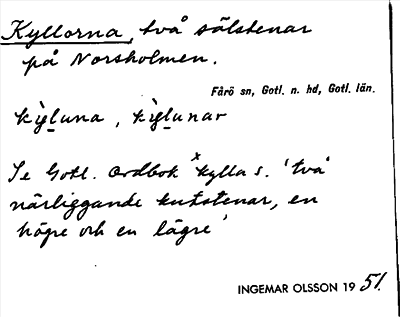 Kyllorna, två sälstenar
på Norsholmen.
Fårö sn, Gotl. n. hd, Gotl. län.
kỳḷuna, kỳḷunar
Se Gotl. Ordbok ˣkylla s. 'två
närliggande kutstenar, en
högre och en lägre'
INGEMAR OLSSON 1951.